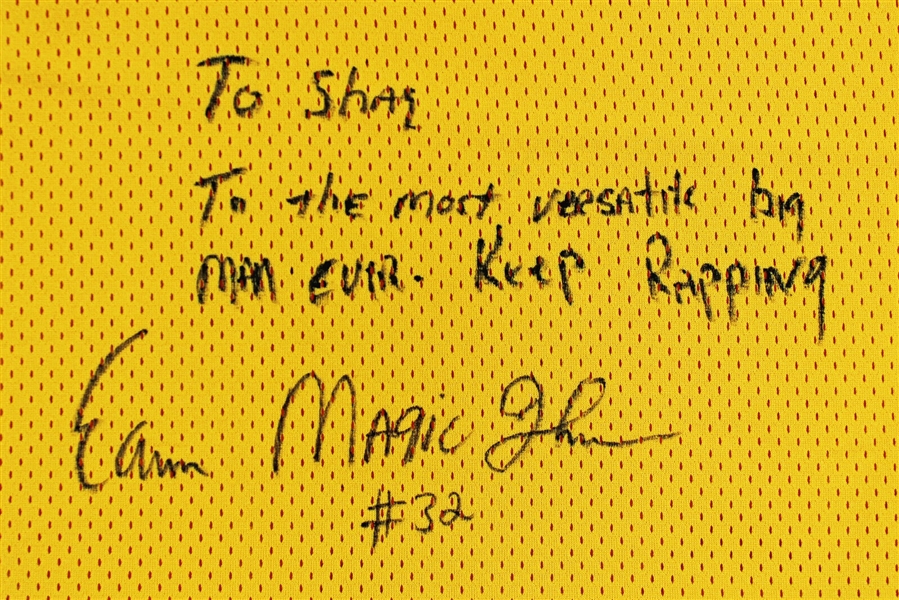 To Shaq
To the most versatile big
man ever. Keep Rapping
Earvin Magic Johnson
#32